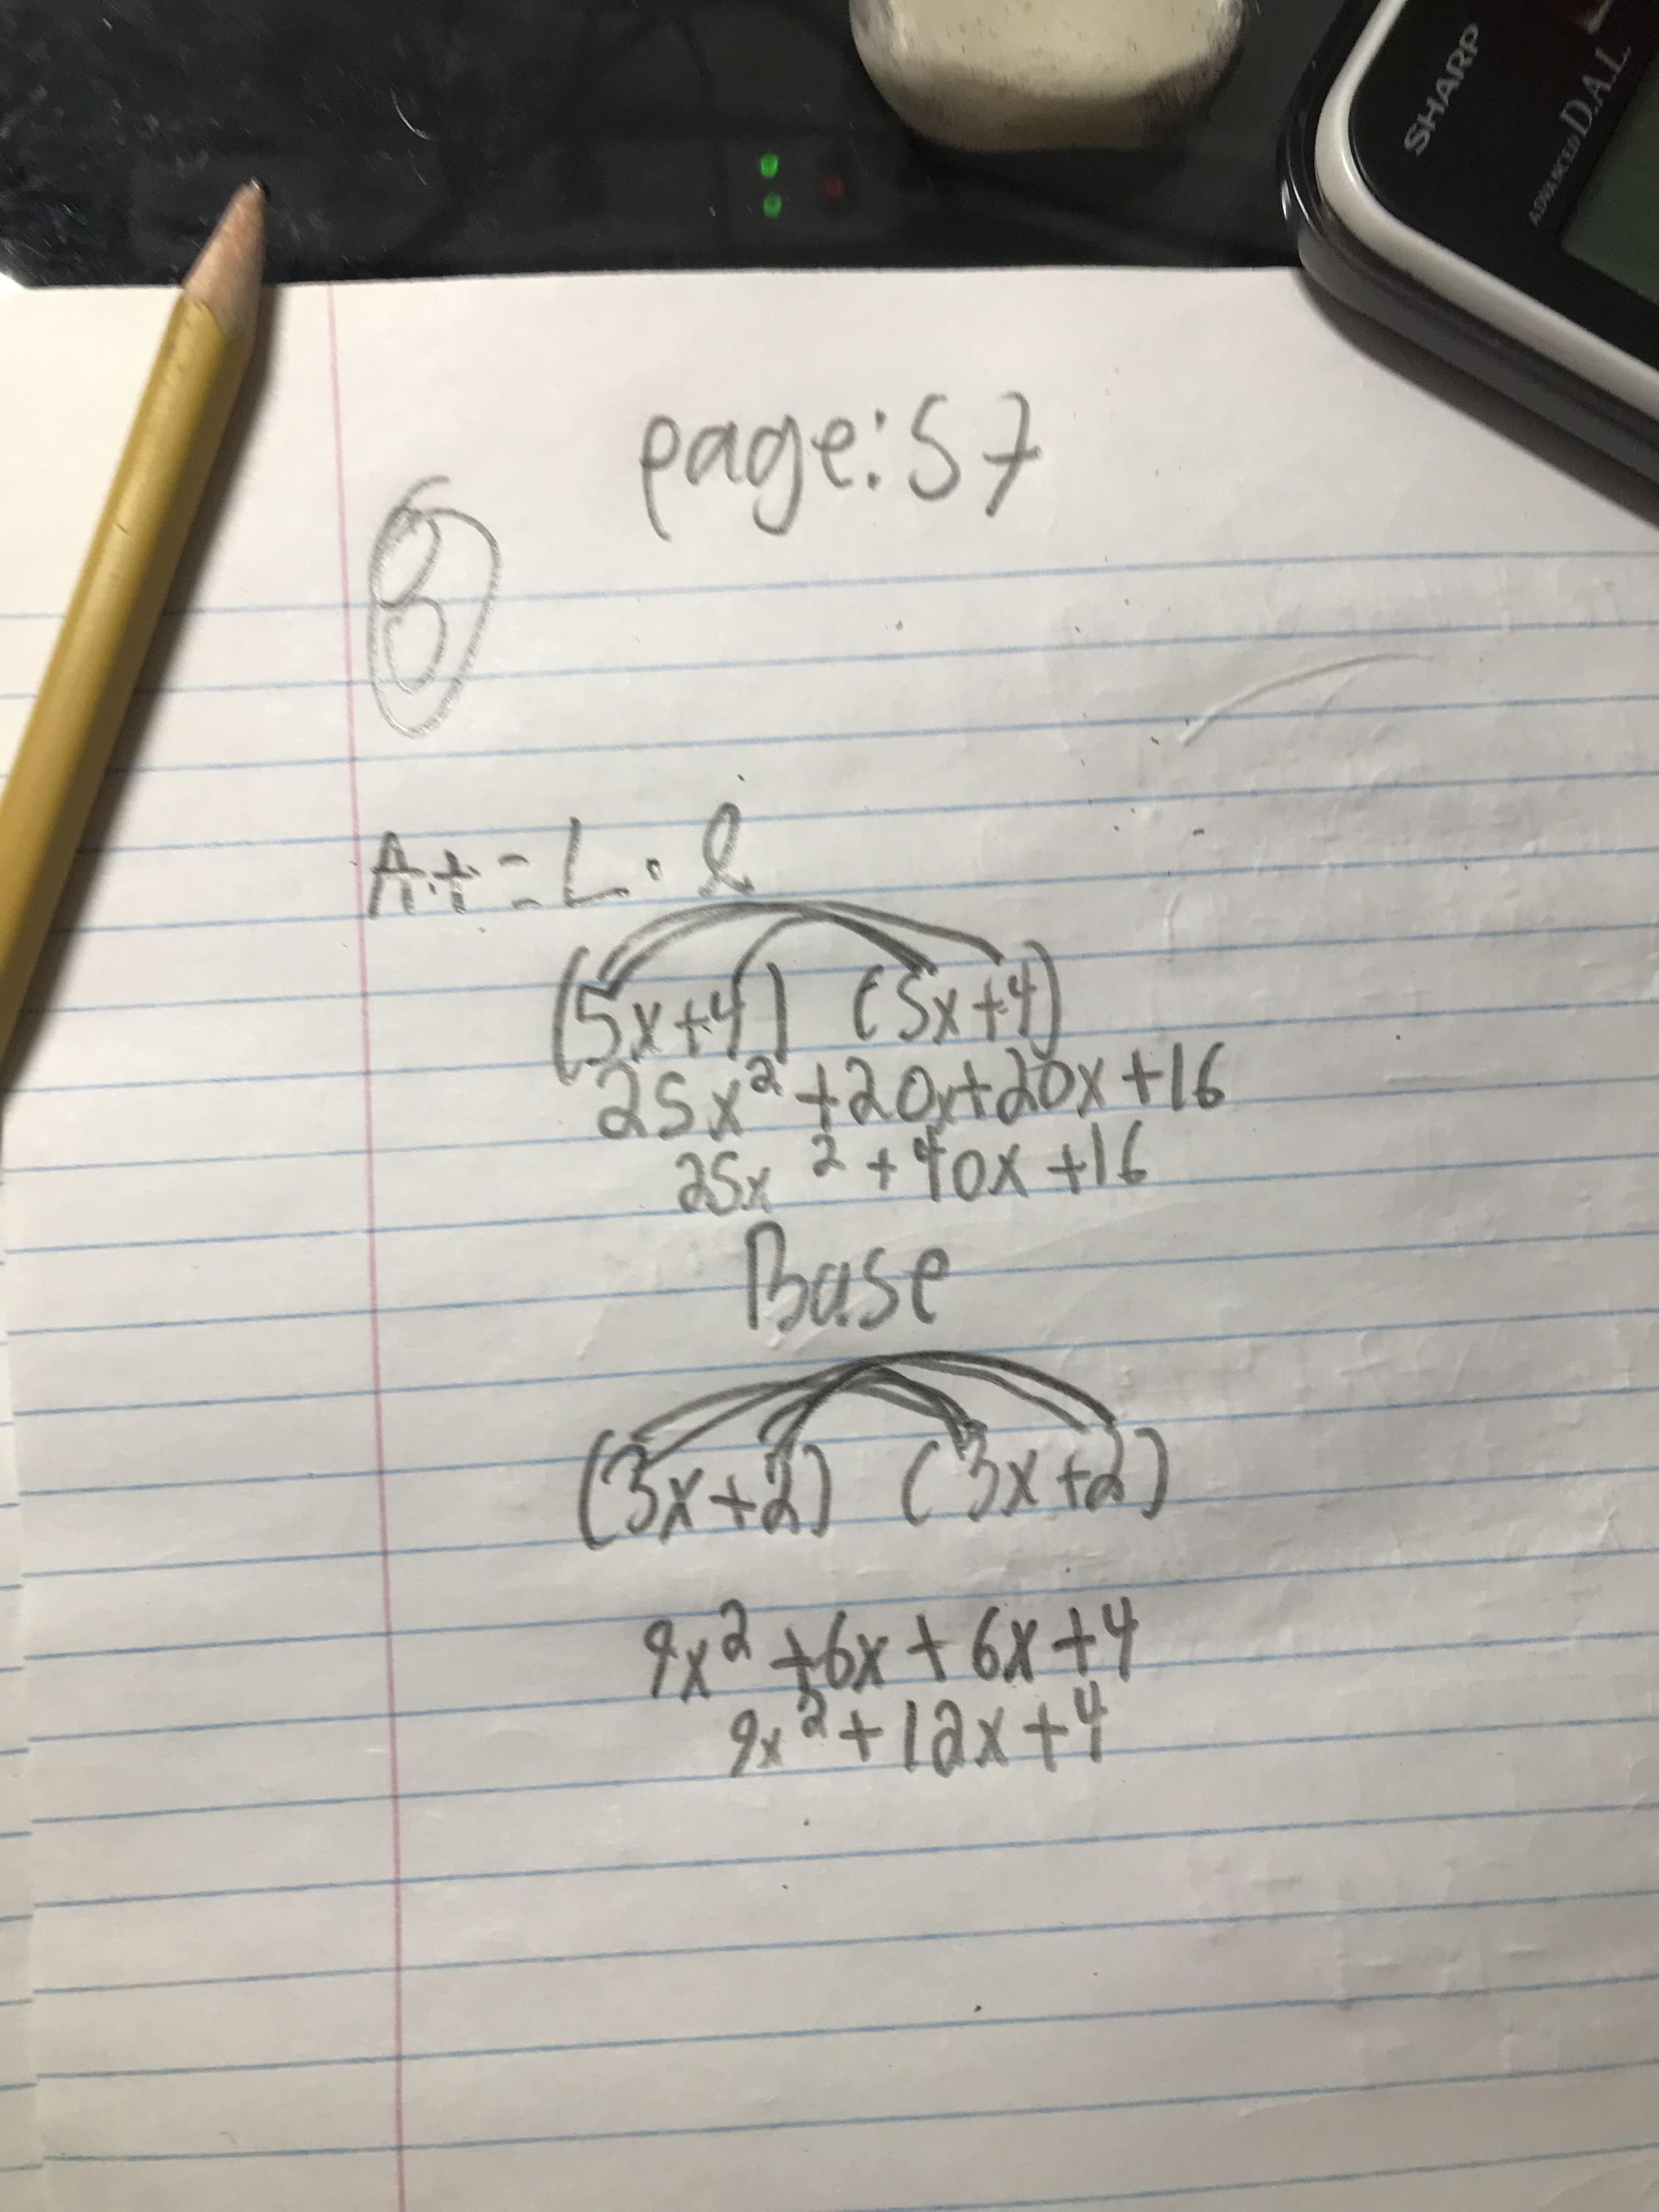 SHARP
ADVANCED D.A.L.
page: 57
8
At = L · l
(5x+4) (5x+4)
25x² +20x+20x +16
25x² + 40x +16
Base
(3x+2) (3x+2)
9x² +6x + 6x +4
9x² + 12x + 4